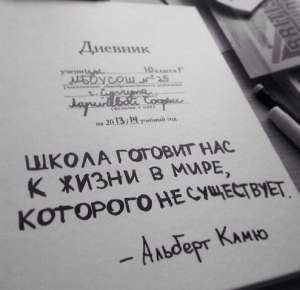 Дневник
учени цы 10 класса Г
МБОУСОШ №28
г. Сургута
Софии
на 2013/14 учебный год
ШКОЛА ГОТОВИТ НАС
К ЖИЗНИ В МИРЕ,
КОТОРОГО НЕ СУЩЕСТВУЕТ.
– Альберт Камю